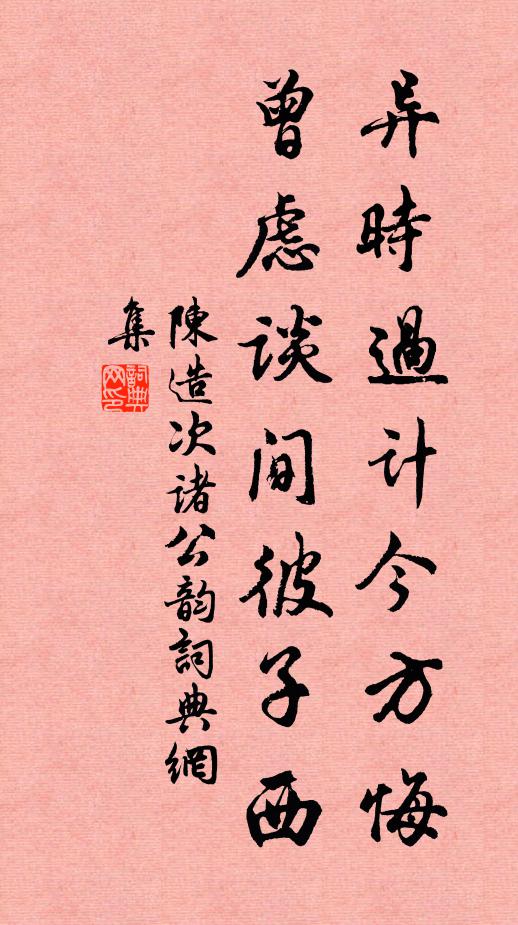 异時過计今方悔
曾慮谈间彼子西
陳造次诸公韵詞典網
集
詞典网印